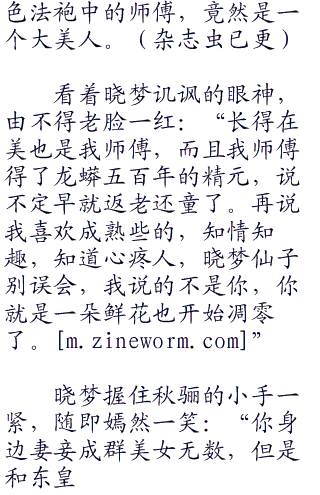 色法袍中的师傅，竟然是一
个大美人。（杂志虫已更）
看着晓梦讥讽的眼神，
由不得老脸一红：“长得在
美也是我师傅，而且我师傅
得了龙蟒五百年的精元，说
不定早就返老还童了。再说
我喜欢成熟些的，知情知
趣，知道心疼人，晓梦仙子
别误会，我说的不是你，你
就是一朵鲜花也开始凋零
了。[m.zineworm.com]”
晓梦握住秋骊的小手一
紧，随即嫣然一笑：“你身
边妻妾成群美女无数，但是
和东皇